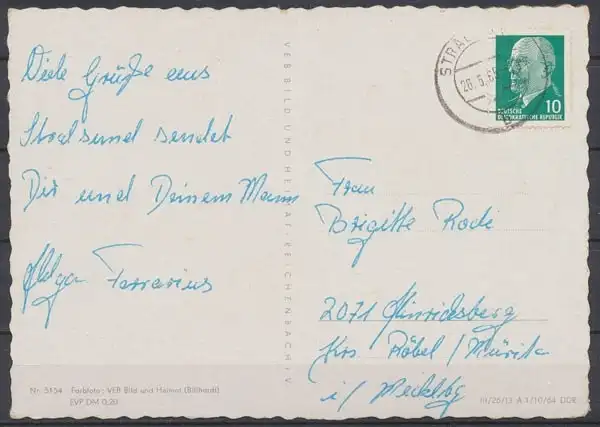 Viele Grüße aus
Stralsund sendet
Dir und Deinem Mann
Helga Ferrarius
Nr. 5154 Farbfoto: VEB Bild und Heimat (Billhardt)
EVP DM 0,20
VEB BILD UND HEIMAT REICHENBACH i. V.
STRAL
26. 5. 65
10
DEUTSCHE
DEMOKRATISCHE REPUBLIK
Frau
Brigitte Rodi
2071 Hinrichsberg
Krs. Röbel / Müritz
i/ Mecklbg
III/26/13 A 1/10/64 DDR